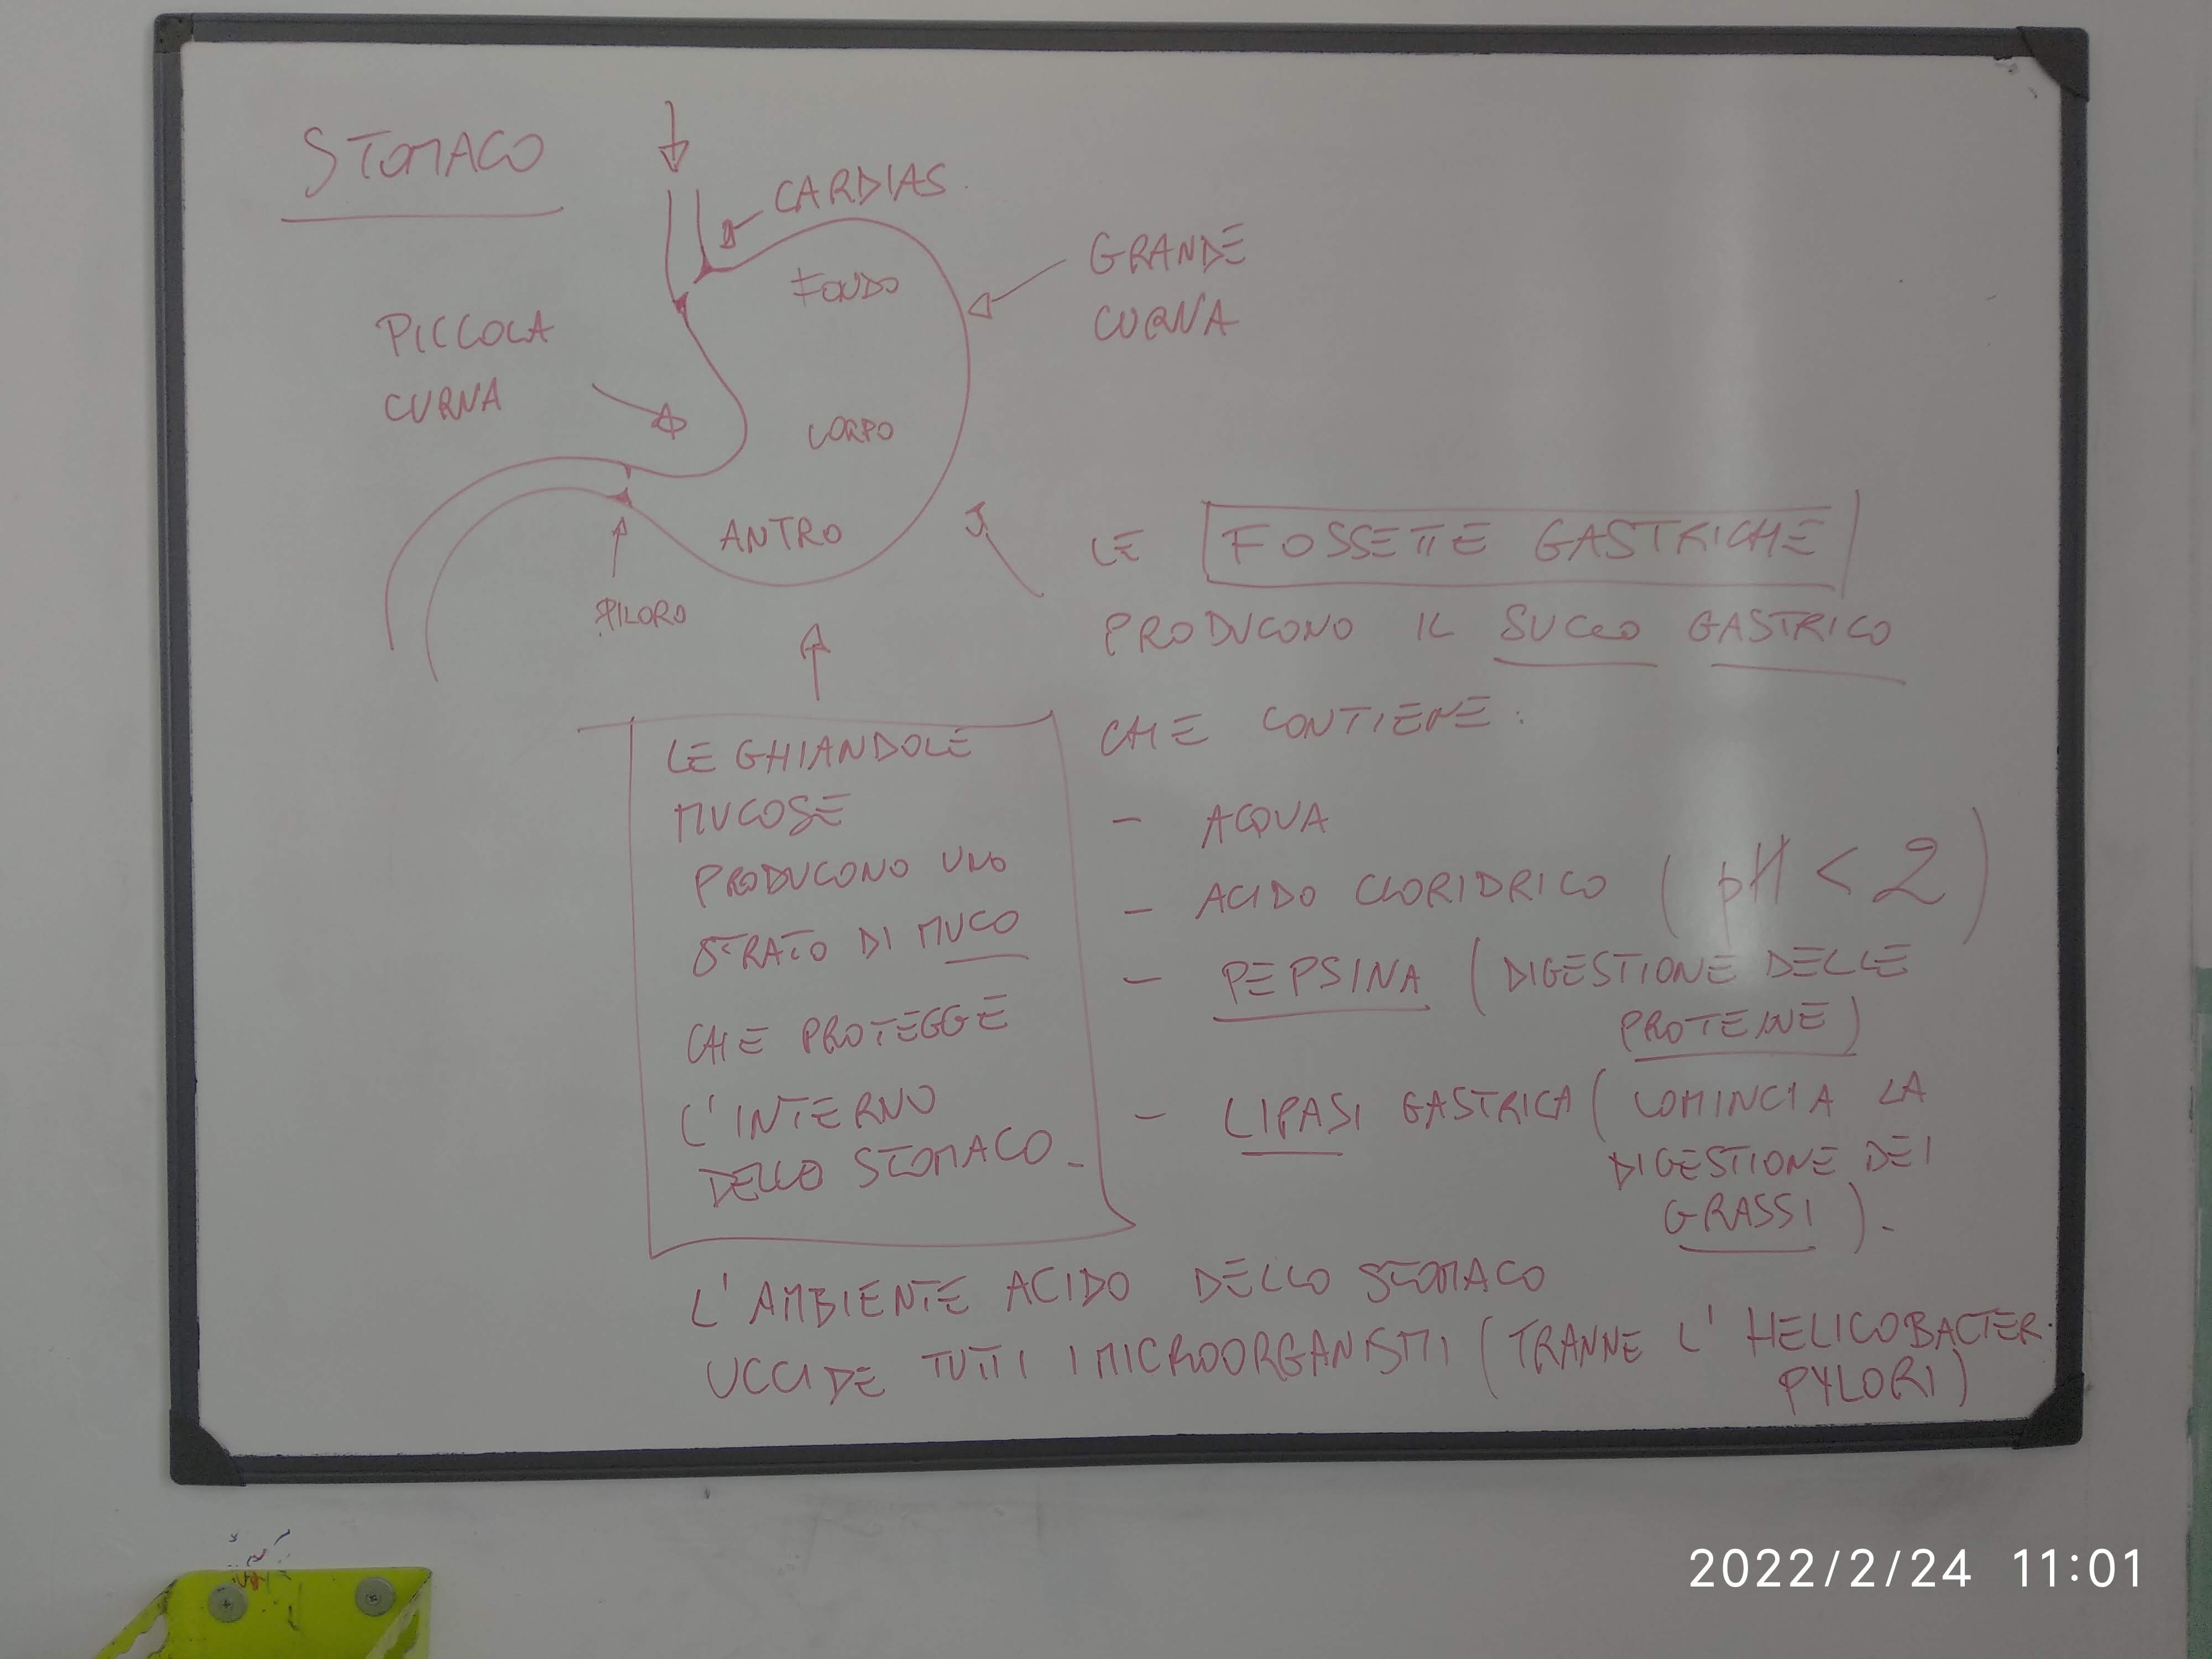 STOMACO
CARDIAS
FONDO
GRANDE
CURVA
PICCOLA
CURVA
CORPO
ANTRO
PILORO
LE FOSSETTE GASTRICHE
PRODUCONO IL SUCCO GASTRICO
CHE CONTIENE:
- ACQUA
- ACIDO CLORIDRICO (pH < 2)
- PEPSINA (DIGESTIONE DELLE
PROTEINE)
- LIPASI GASTRICA (COMINCIA LA
DIGESTIONE DEI
GRASSI).
LE GHIANDOLE
MUCOSE
PRODUCONO UNO
STRATO DI MUCO
CHE PROTEGGE
L'INTERNO
DELLO STOMACO.
L'AMBIENTE ACIDO DELLO STOMACO
UCCIDE TUTTI I MICROORGANISMI (TRANNE L'HELICOBACTER
PYLORI)
2022/2/24 11:01